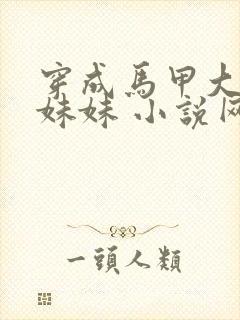 穿成馬甲大
妹妹 小說
一頭人類